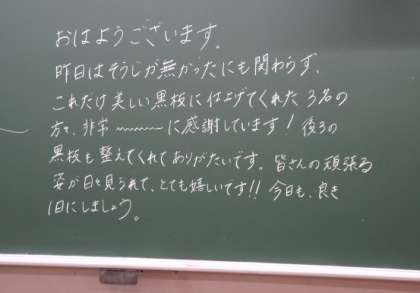 おはようございます。
昨日はそうじが無かったにも関わらず、
これだけ美しい黒板に仕上げてくれた3名の
方々、非常〜〜〜〜に感謝しています!後ろの
黒板も整えてくれてありがたいです。皆さんの頑張る
姿が日々見られて、とても嬉しいです!!今日も、良き
1日にしましょう。